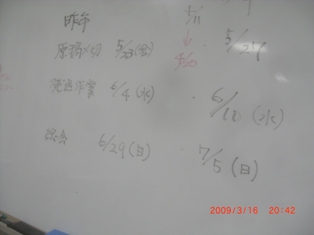 昨年
5/11
原稿〆切 5/23(金)
発送作業 6/4(水) . 6/10(水)
総会 6/29(日) . 7/5(日)
2009/3/16 20:42